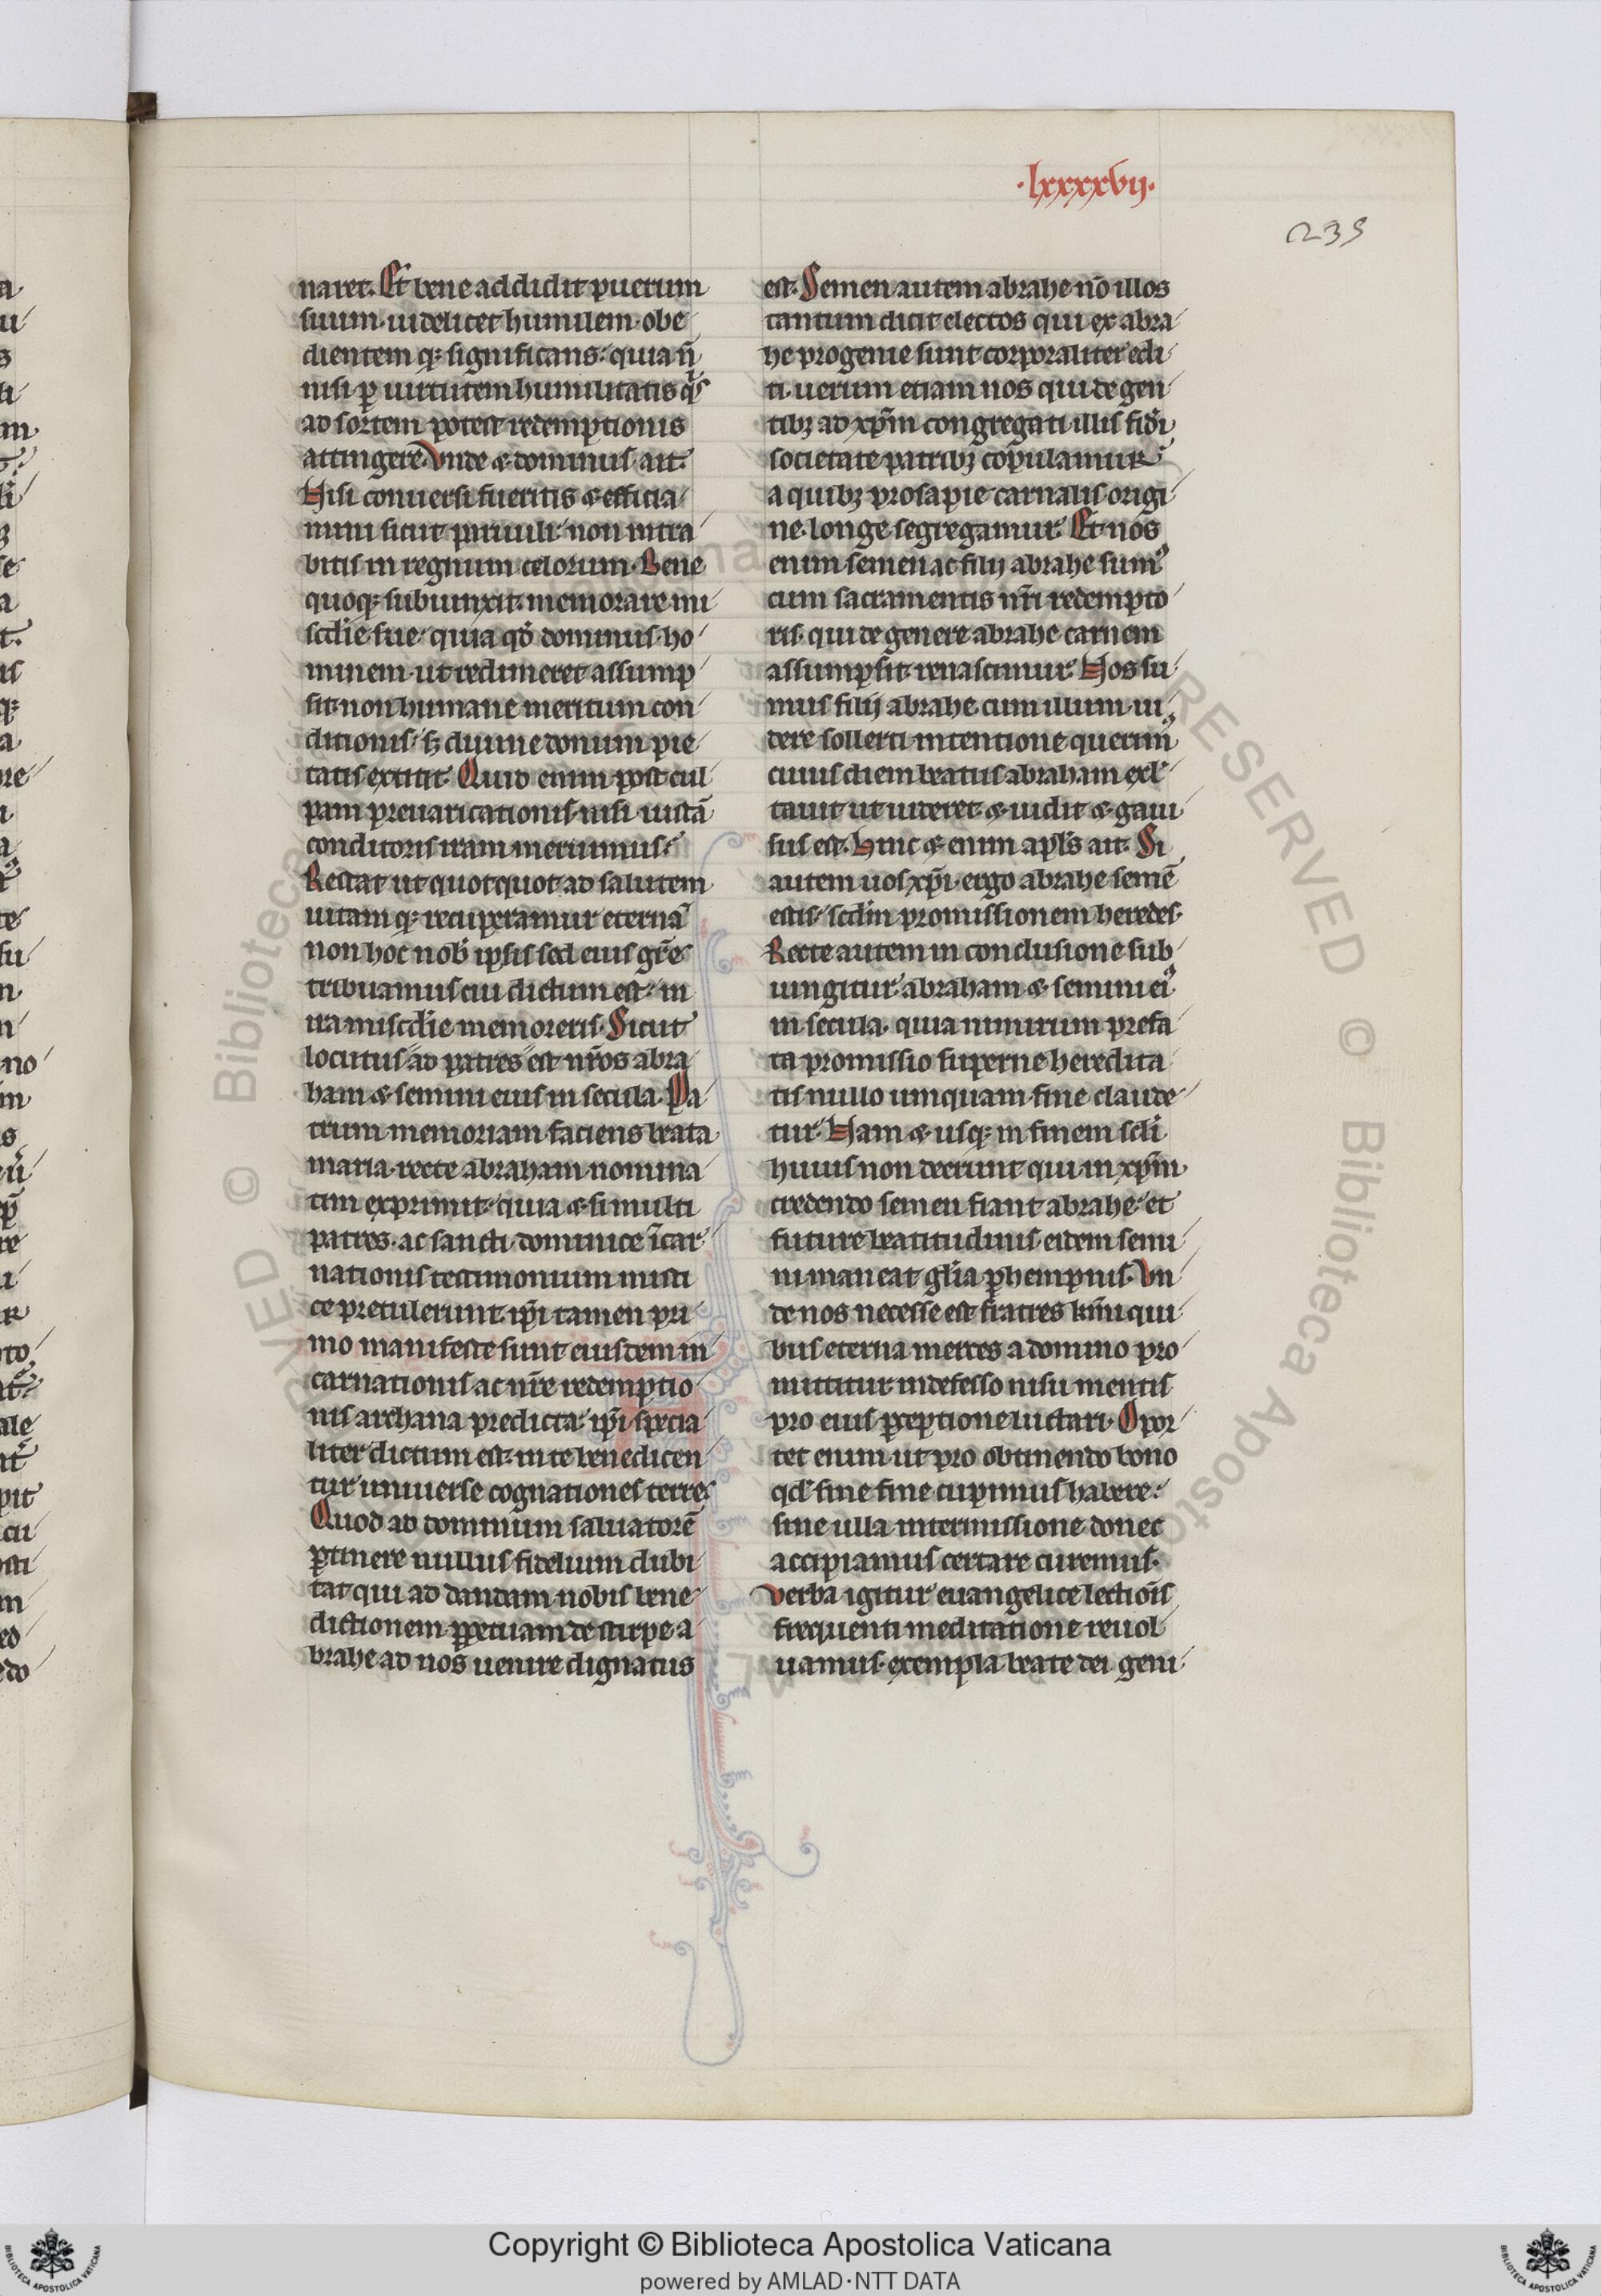 ·lxxxxvij·
239
naret. Et bene addidit puerum
suum. uidelicet humilem. obe
dientem q; significans: quia ñ
nisi ꝑ uirtutem humilitatis qͥs
ad sortem potest redemptionis
attingere. Vnde ⁊ dominus ait.
Nisi conuersi fueritis ⁊ efficia
mini sicut paruuli: non intra
bitis in regnum celorum. Bene
quoq; subiunxit. memorare mi
scd̃ie sue. quia qd̾ dominus ho
minem. ut redimeret assump
sit. non humane meritum con
ditionis. sꝫ diuine donum pie
tatis extitit. Quid enim post cul
pam preuaricationis. nisi iustã
conditoris iram meruimus?
Restat ut quotquot ad salutem
uitam q; recuperamur eternã
non hoc nob̾ ipsis sed eius gr̃e
tribuamus cui dictum est. in
ira miscd̃ie memoreris. Sicut
locutus ad patres est nr̃os abra
ham ⁊ semini eius in secula. Pa
trum memoriam faciens beata
maria. recte abraham nomina
tim exprimit. quia ⁊ si multi
patres. ac sancti. dominice ĩcar
nationis testimonium misti
ce pretulerunt. ip̃i tamen pri
mo manifeste sunt eiusdem in
carnationis ac nr̃e redemptio
nis archana predicta. ip̃i specia
liter dictum est. in te benedicen
tur uniuerse cognationes terre.
Quod ad dominum saluatorẽ
ꝑtinere nullus fidelium dubi
tat qui ad dandam nobis bene
dictionem ꝑpetuam de stirpe a
brahe ad nos uenire dignatus
est. Semen autem abrahe nõ illos
tantum dicit electos qui ex abra
he progenie sunt corporaliter edi
ti. uerum etiam nos qui de gen
tibꝫ ad xp̃m congregati illis fid̾i
societate patribꝫ copulamur
a quibꝫ prosapie carnalis origi
ne. longe segregamur. Et nos
enim semen ac filij abrahe sumꝰ
cum sacramentis nr̃i redempto
ris. qui de genere abrahe carnem
assumpsit. renascimur. Nos su
mus filij abrahe. cum illum. ui
dere sollerti intentione querimꝰ
cuius diem beatus abraham exl̾
tauit ut uideret. ⁊ uidit ⁊ gaui
sus est. Hinc ⁊ enim apl̃s ait. Si
autem uos xp̃i. ergo abrahe semẽ
estis. scd̃m promissionem heredes.
Recte autem in conclusione sub
iungitur abraham ⁊ semini eiꝰ
in secula. quia nimirum prefa
ta promissio superne heredita
tis nullo umquam fine claude
tur. Nam ⁊ usq; in finem scl̃i
huius non deerunt qui in xp̃m
credendo semen fiant abrahe. et
future beatitudinis eidem semi
ni maneat gl̃ia ꝑhempnis. Vn
de nos necesse est fratres km̃i qui
bus eterna merces a domino pro
mittitur indefesso nisu mentis
pro eius ꝑceptione luctari. Opor
tet enim ut pro obtinendo bono
qd̾ sine fine cupimus habere.
sine ulla intermissione donec
accipiamus certare curemus.
Verba igitur euangelice lectiõis
frequenti meditatione reuol
uamus. exempla beate dei geni
Copyright © Biblioteca Apostolica Vaticana
powered by AMLAD·NTT DATA